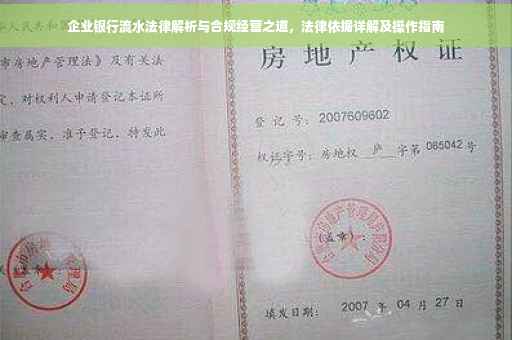 企业银行流水法律解析与合规经营之道，法律依据详解及操作指南
华人民共和国
市房地产管理法》及有关法
定，对权利人申请登记本证所
审查属实，准予登记，特发此
房地产权证
登记号：2007609602
权证字号：房地权 庐 字第 085042 号
(盖章)：
填发日期： 2007 年 04 月 27 日